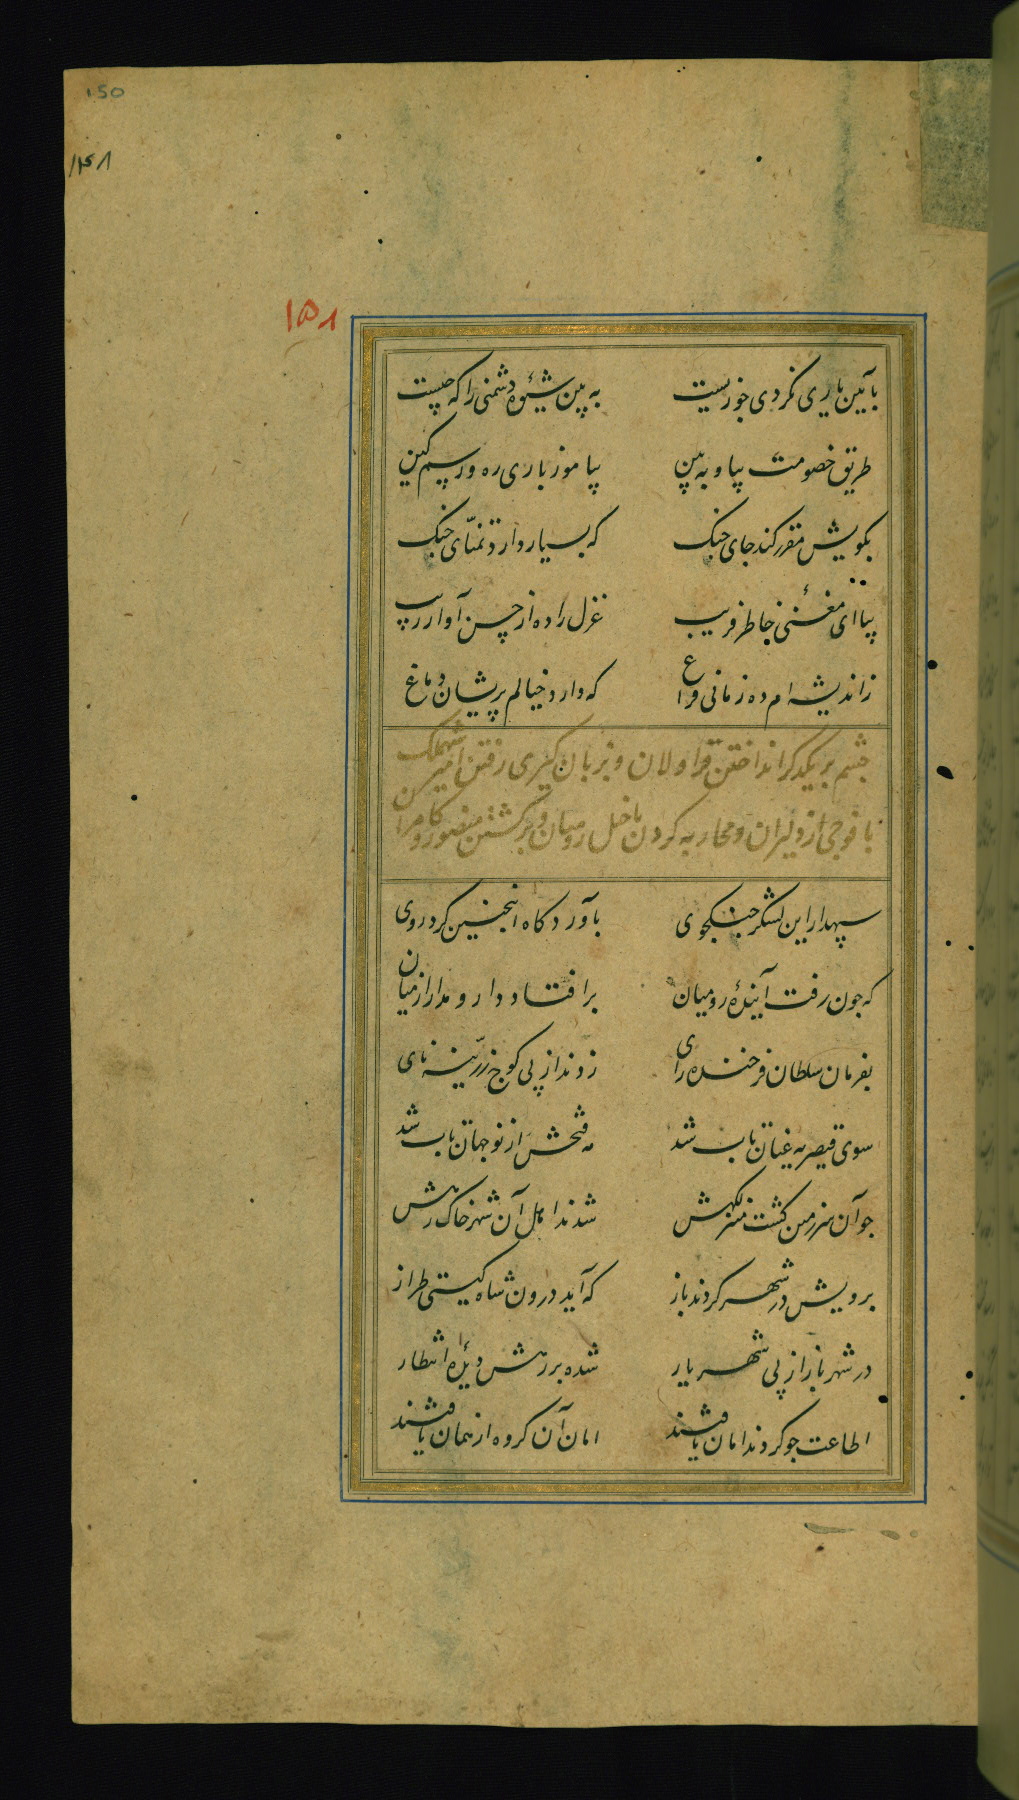 150
۱۴۸
۱۵۸
بآیین یاری نکردی خورسیت به بین شیوهٔ دشمنی را که چیست
طریق خصومت بیا و به بین بیاموز باری ره و رسم کین
بکویش مقرر کند جای جنک که بسیار دارد تمنّای جنک
بیا ای مغنّی خاطر فریب غزل را ده از حسن آواز زیب
ز اندیشه ام ده زمانی فراغ که دارد خیالم پریشان دماغ
چشم بر یکدکر انداختن قراولان و بزبان کیری رفتن امیر شهملک
با فوجی از دلیران و محاربه کردن با خیل رومیان و برکشتن منصور و کامران
سپهدار این لشکر جنکجوی بآوردکاه انجنین کرد روی
که جون رفت آیندهٔ رومیان برافتاد دار و مدار از میان
بفرمان سلطان فرخنده رای زدند از پی کوچ زرّینه نای
سوی قیصریه عنان تاب شد مه فتحش از نو جهان تاب شد
جو آن سرزمین کشت منزلکهش شدند اهل آن شهر خاک رهش
برویش در شهر کردند باز که آید درون شاه کیتی طراز
در شهر باز از پی شهریار شده بر رهش دیدهٔ انتظار
اطاعت جو کردند امان یافتند امان آن کروه از همان یافتند